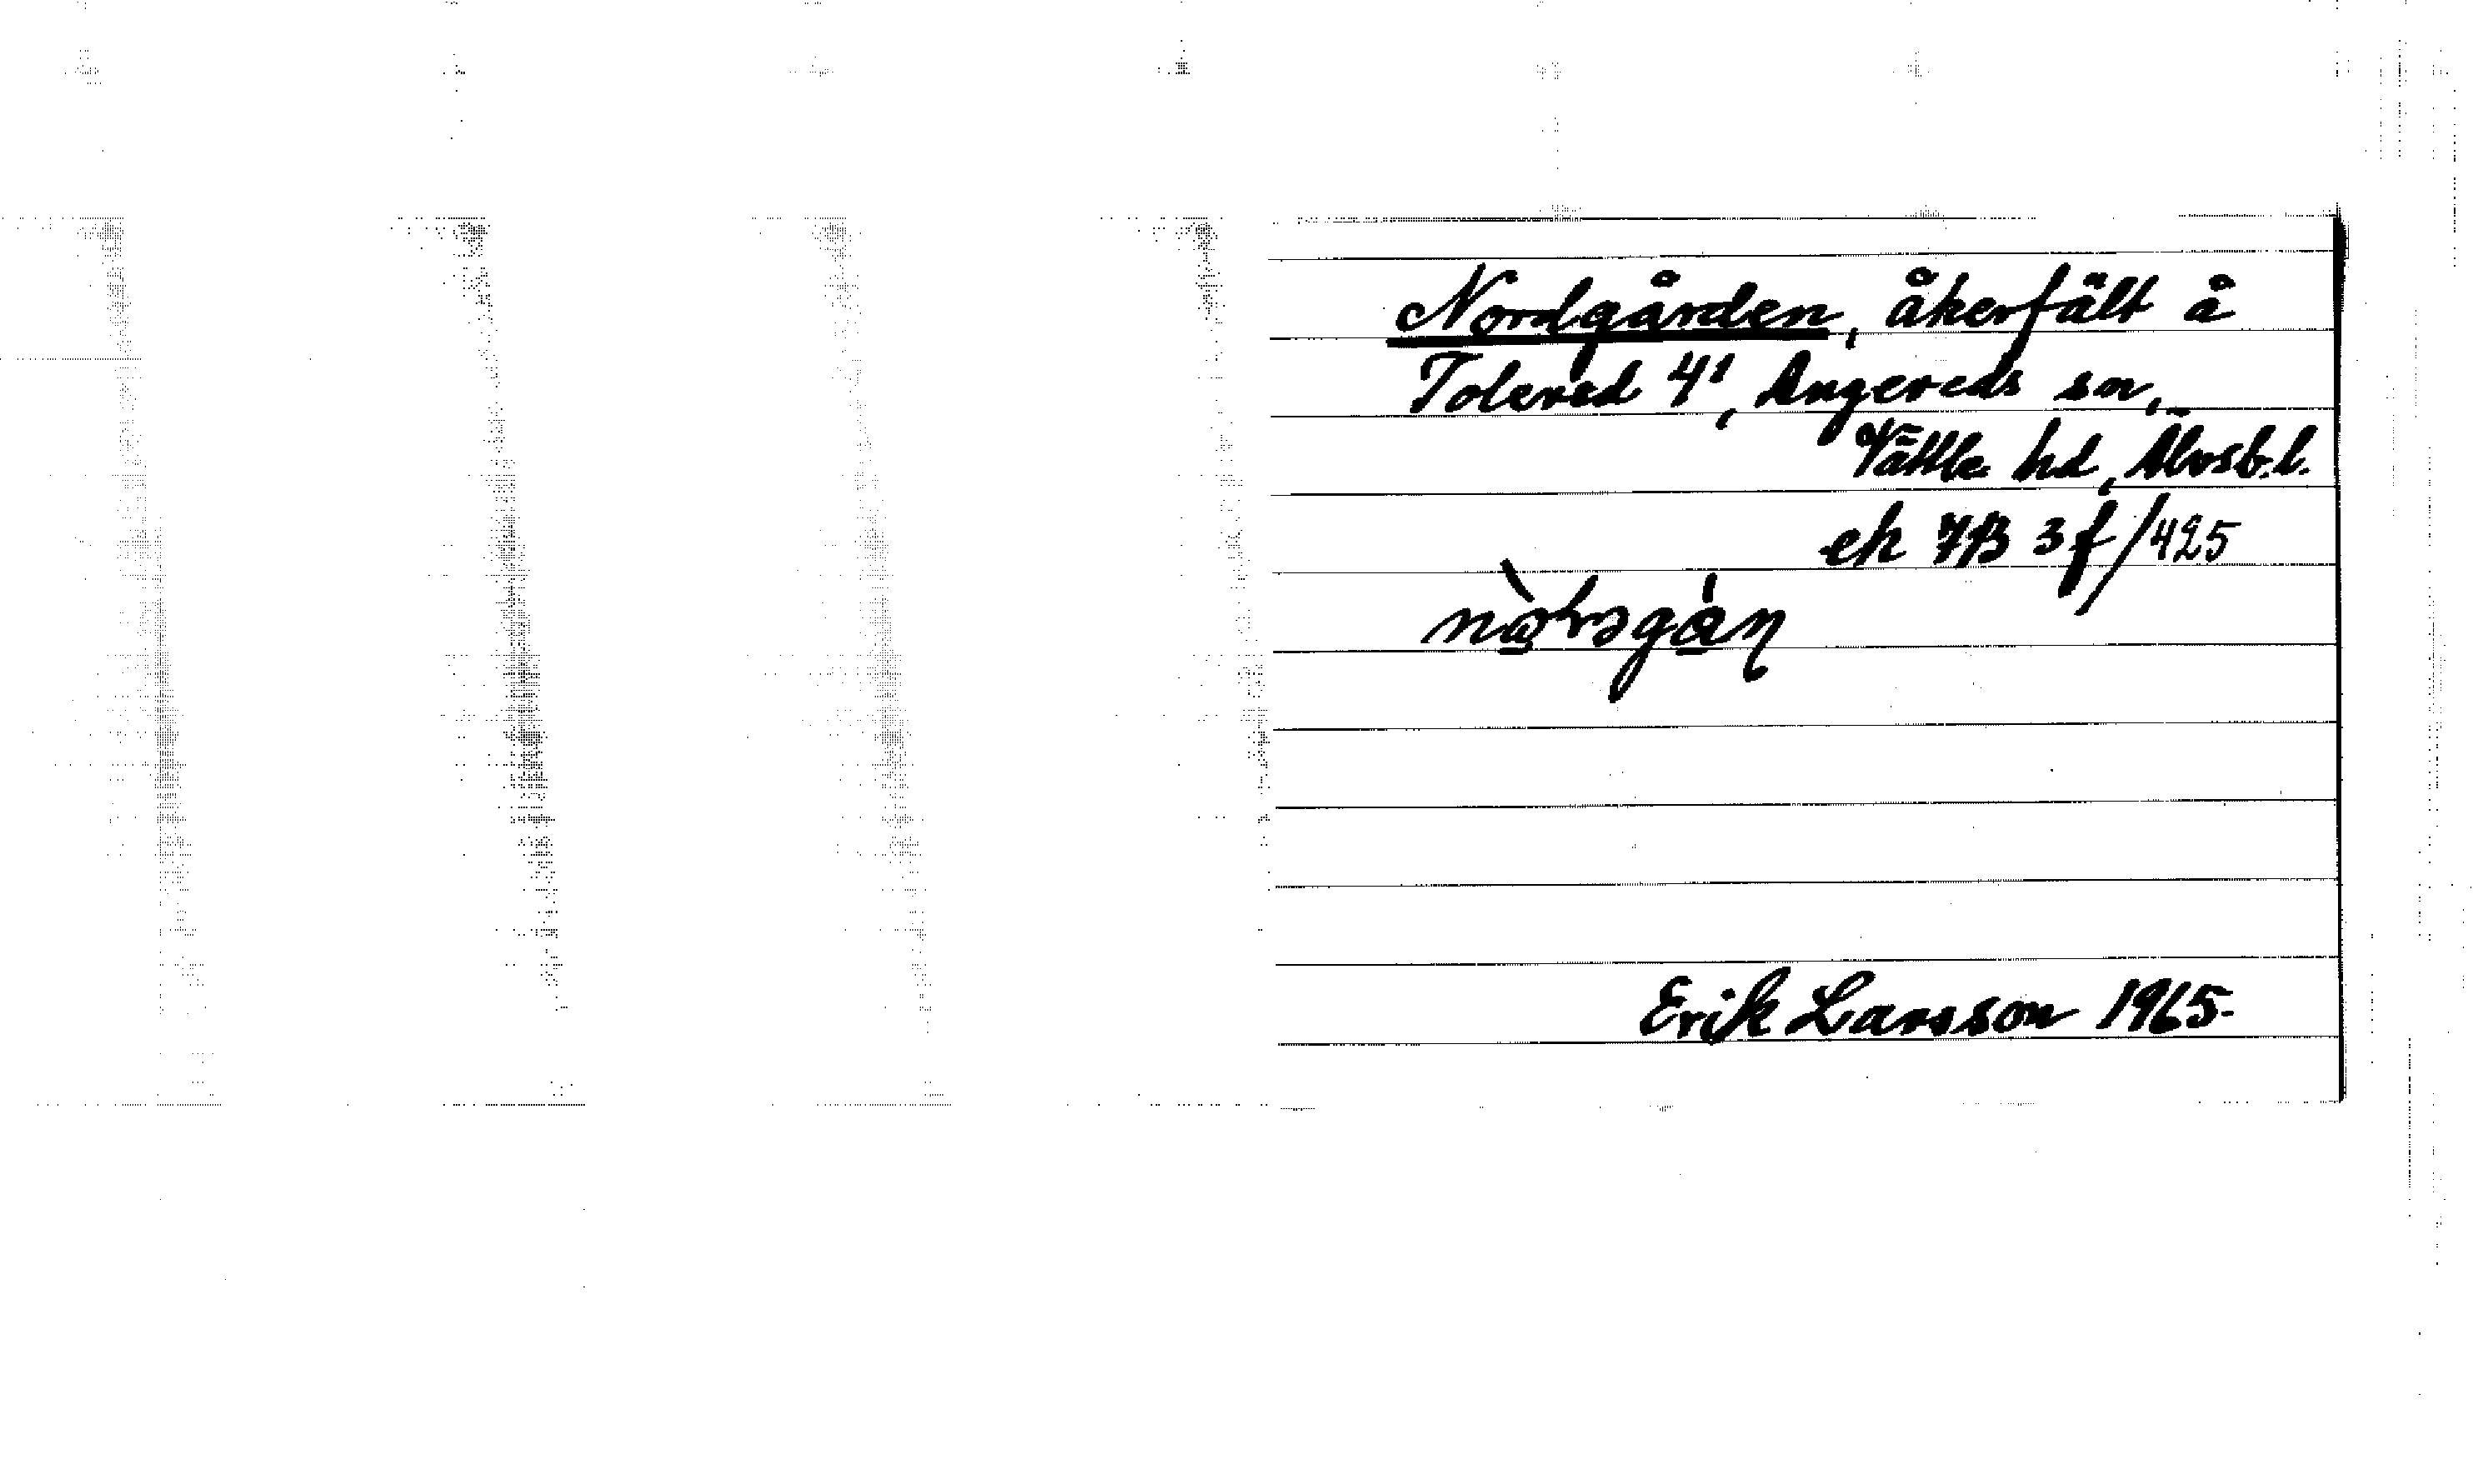 Nordgården, åkerfält å
Tolered 4¹, Angereds sn,
Vättle hd, Älvsb.l.
ek 7B 3f/425
Erik Larsson 1965.